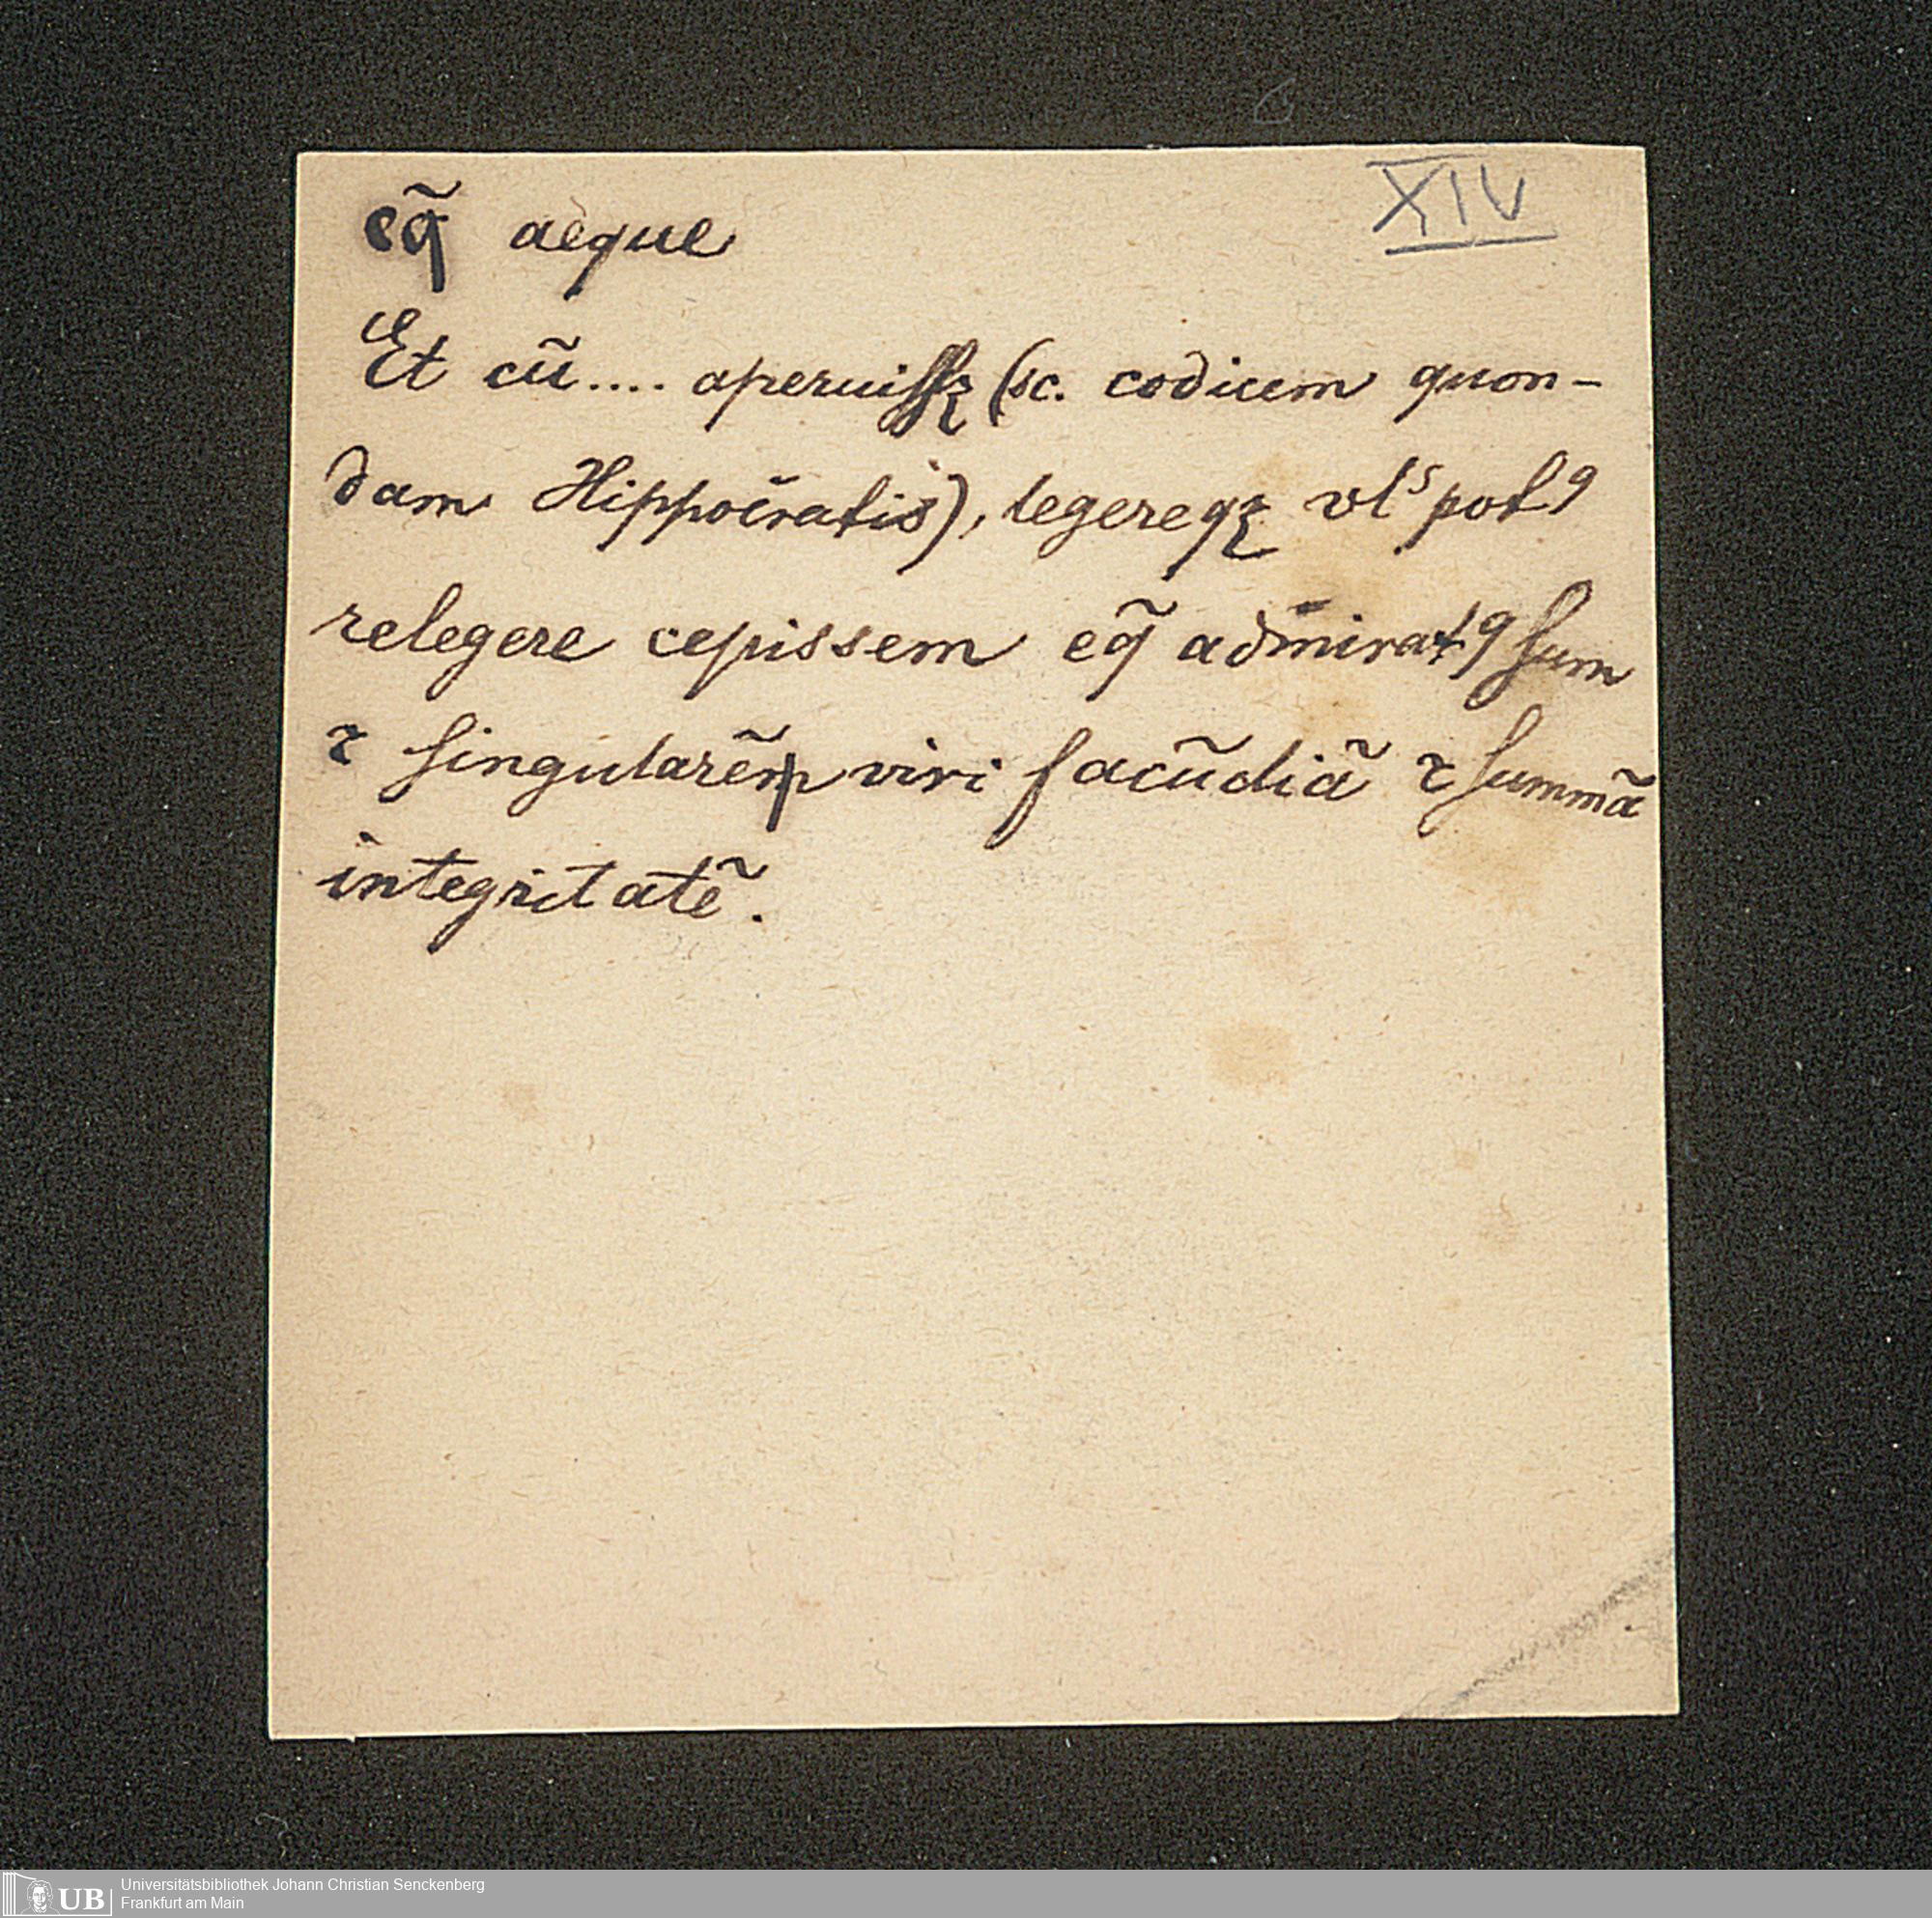 eq̃ aeque XIV
Et cũ.... aperuiſſꝫ (sc. codicem quon-
dam Hippocratis), legereqꝫ vlˢ potꝰ
relegere cepissem eq̃ admiratꝰ ſum
⁊ ſingularẽm viri facũdiã ⁊ ſummã
integritatẽ.
UB Universitätsbibliothek Johann Christian Senckenberg
Frankfurt am Main